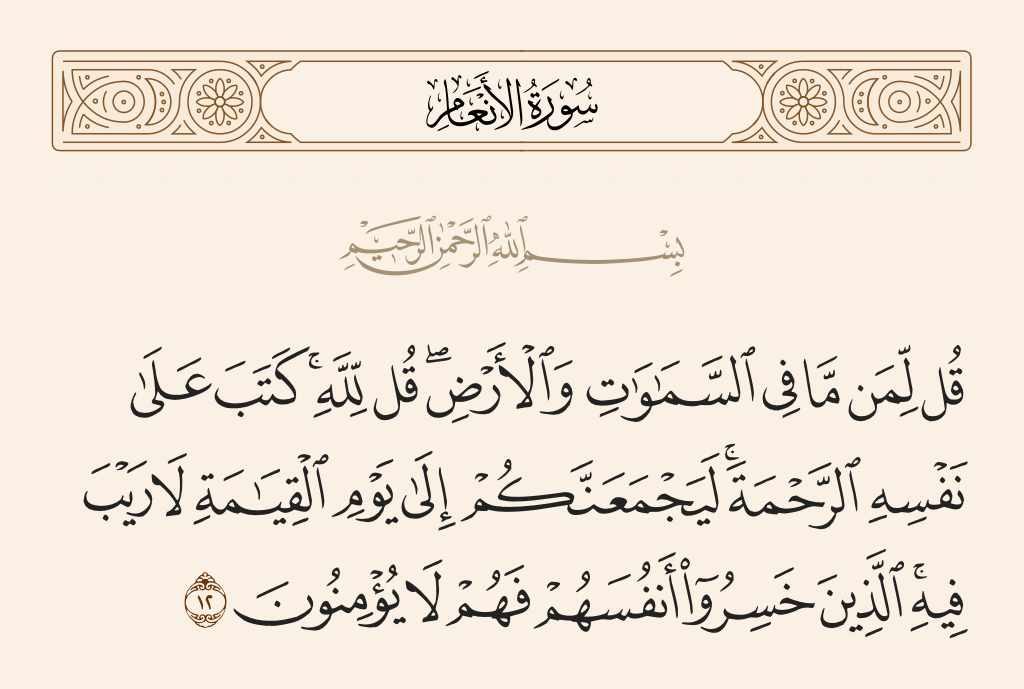 سُورَةُ الأَنْعَامِ
بِسْمِ ٱللَّهِ ٱلرَّحْمَٰنِ ٱلرَّحِيمِ
قُل لِّمَن مَّا فِى ٱلسَّمَٰوَٰتِ وَٱلْأَرْضِ ۖ قُل لِّلَّهِ ۚ كَتَبَ عَلَىٰ
نَفْسِهِ ٱلرَّحْمَةَ ۚ لَيَجْمَعَنَّكُمْ إِلَىٰ يَوْمِ ٱلْقِيَٰمَةِ لَا رَيْبَ
فِيهِ ۚ ٱلَّذِينَ خَسِرُوٓا۟ أَنفُسَهُمْ فَهُمْ لَا يُؤْمِنُونَ ١٢